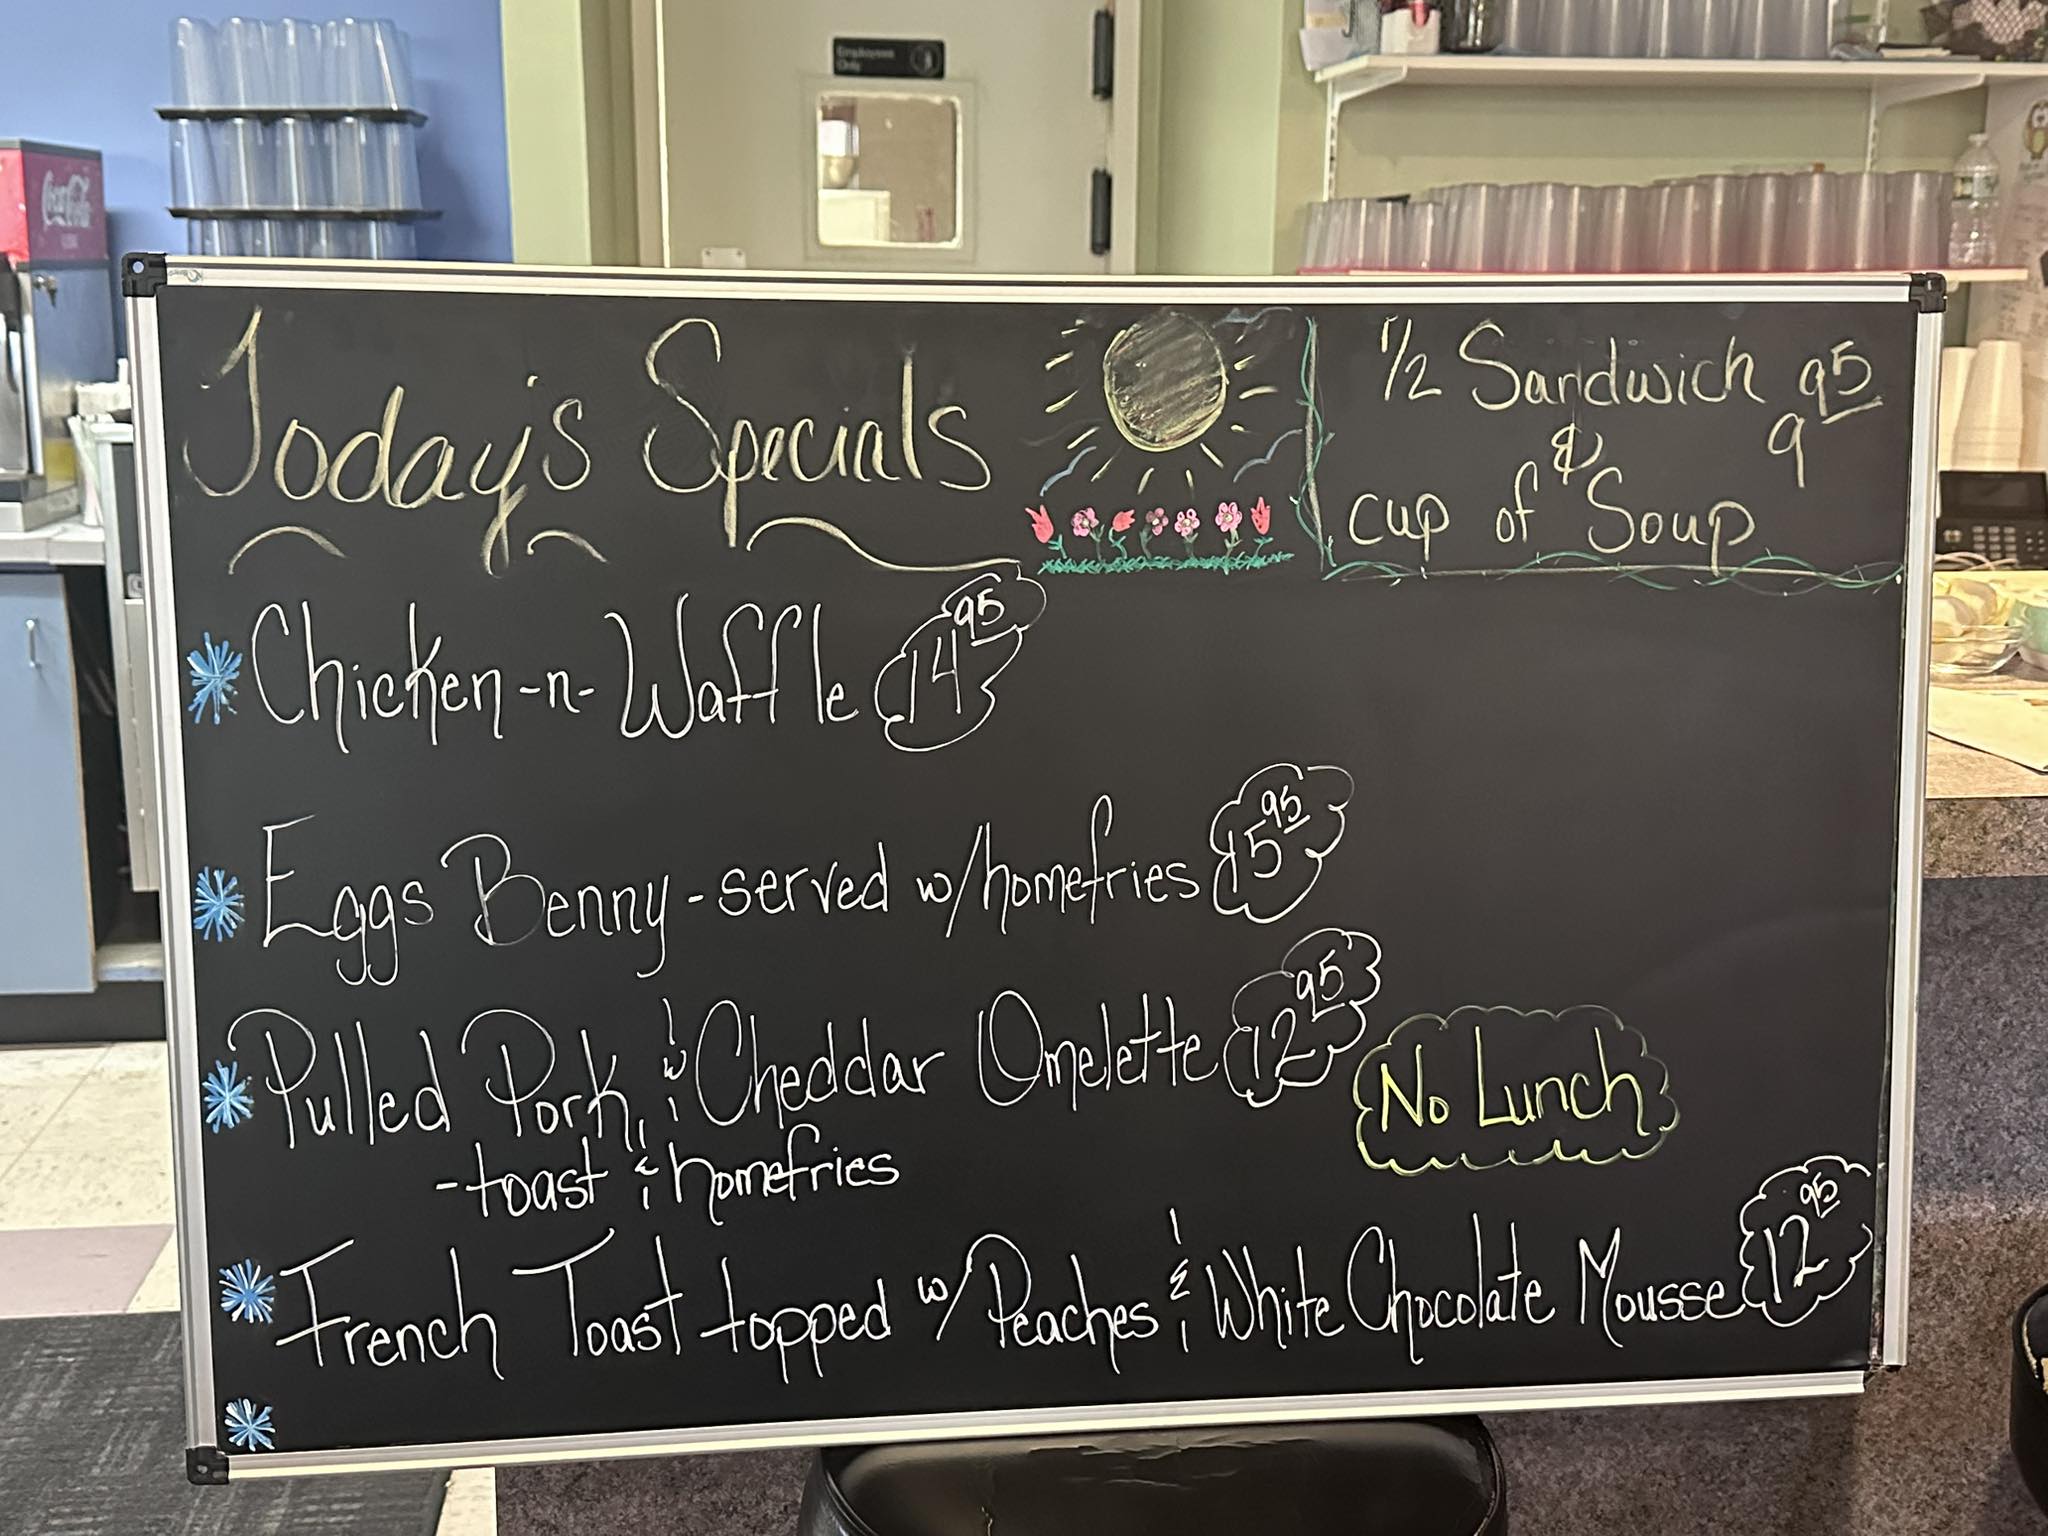 Employees
Only
Coca-Cola
Today's Specials
1/2 Sandwich 9 95
&
cup of Soup
Chicken-n-Waffle 14 95
Eggs Benny-served w/homefries 15 95
Pulled Pork & Cheddar Omelette 12 95
-toast & homefries
No Lunch
French Toast topped w/Peaches & White Chocolate Mousse 12 95